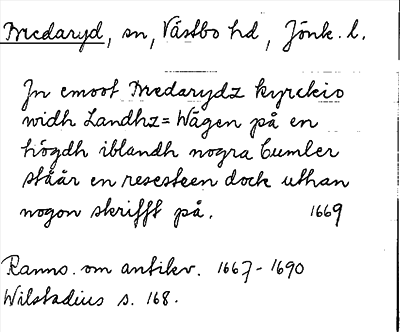 Bredaryd, sn, Västbo hd, Jönk. l.
Jn emoot Bredarydz kyrckio
widh Landhz=Wägen på en
högdh iblandh nogra Cumler
ståår en resesteen dock uthan
nogon skrifft på. 1669
Ranns. om antikv. 1667-1690
Wilstadius s. 168.